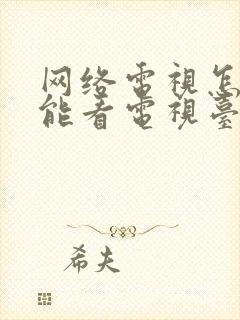 网络電視怎
能看電視臺
希夫